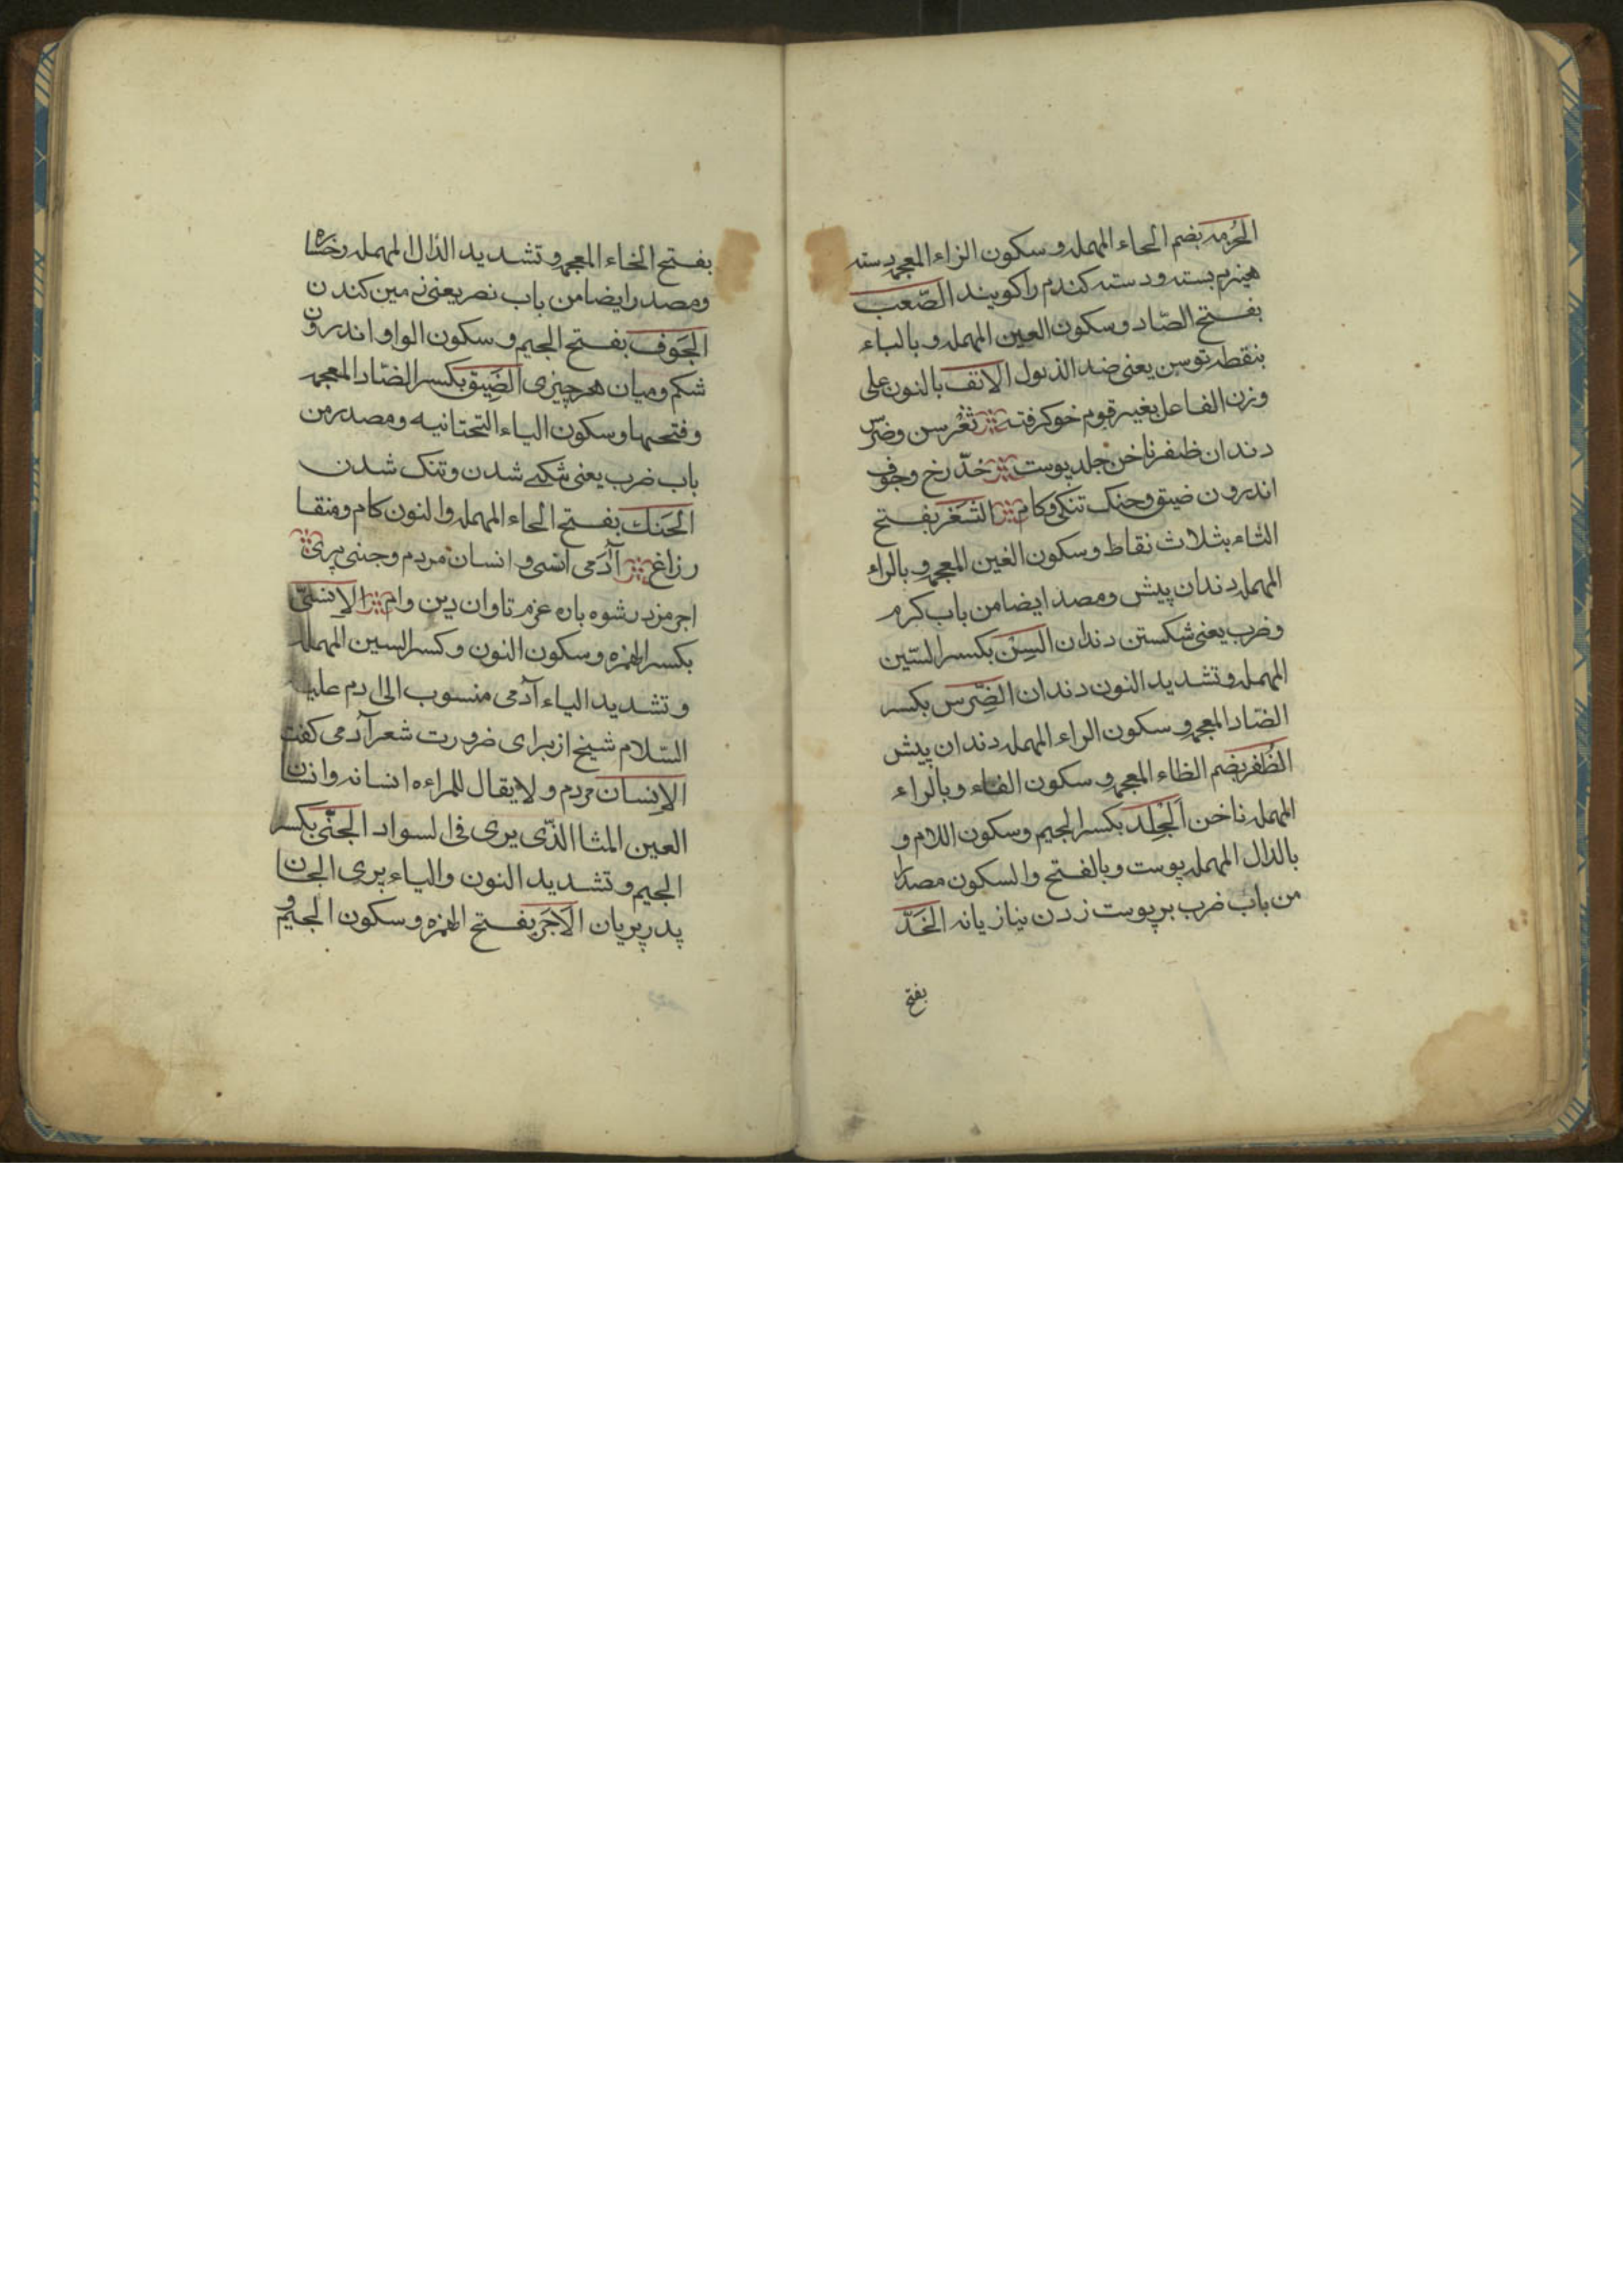 الحُزمه بضم الحاء المهمله و سکون الزاء المعجمه دسته
هیزم بسته و دسته کندم را کویند الصَّعب
بفتح الصّاد و سکون العین المهمله و بالباء
بنقطه توسن یعنی ضد الذلول الانف بالنون علی
وزن الفاعل بغیر قوم خو کرفته ثَغْر سن و ضِرس
دندان ظفر ناخن جلد پوست خدّ رخ و جوف
اندرون ضیق و حنک تنکی و کام الثَغر بفتح
الثاء بثلاث نقاط و سکون الغین المعجمه و بالراء
المهمله دندان پیش و مصدر ایضا من باب کرم
و ضرب یعنی شکستن دندان السِنّ بکسر السّین
المهمله و تشدید النون دندان الضِّرس بکسر
الضّاد المعجمه و سکون الراء المهمله دندان پیش
الظُفر بضم الظاء المعجمه و سکون الفاء و بالراء
المهمله ناخن الجِلد بکسر الجیم و سکون اللام و
بالدال المهمله پوست و بالفتح والسکون مصدرا
من باب ضرب بر پوست زدن بتازیانه الخَدّ
بفتح
بفتح الخاء المعجمه و تشدید الدّال المهمله رخساره
و مصدر ایضا من باب نصر یعنی زمین کندن
الجَوف بفتح الجیم و سکون الواو اندرون
شکم و میان هر چیزی الضِیق بکسر الضّاد المعجمه
و فتحها و سکون الیاء التحتانیه و مصدر من
باب ضرب یعنی شدن و تنک شدن
الحَنَک بفتح الحاء المهمله والنون کام و منقا
ر زاغ آدَمی انسی و انسان مردم و جنی پری
اجر مزد رشوه باره غرم تاوان دین وام الإنسیّ
بکسر الهمزه و سکون النون و کسر السین المهمله
و تشدید الیاء آدمی منسوب الی ادم علیه
السّلام شیخ از برای ضرورت شعر آدمی کفت
الإنسان مردم و لا یقال للمراءه انسانه و انسان
العین المثال الذّی یری فی السواد الجنّی بکسر
الجیم و تشدید النون والیاء پری الجان
پدر پریان الاَجر بفتح الهمزه و سکون الجیم و